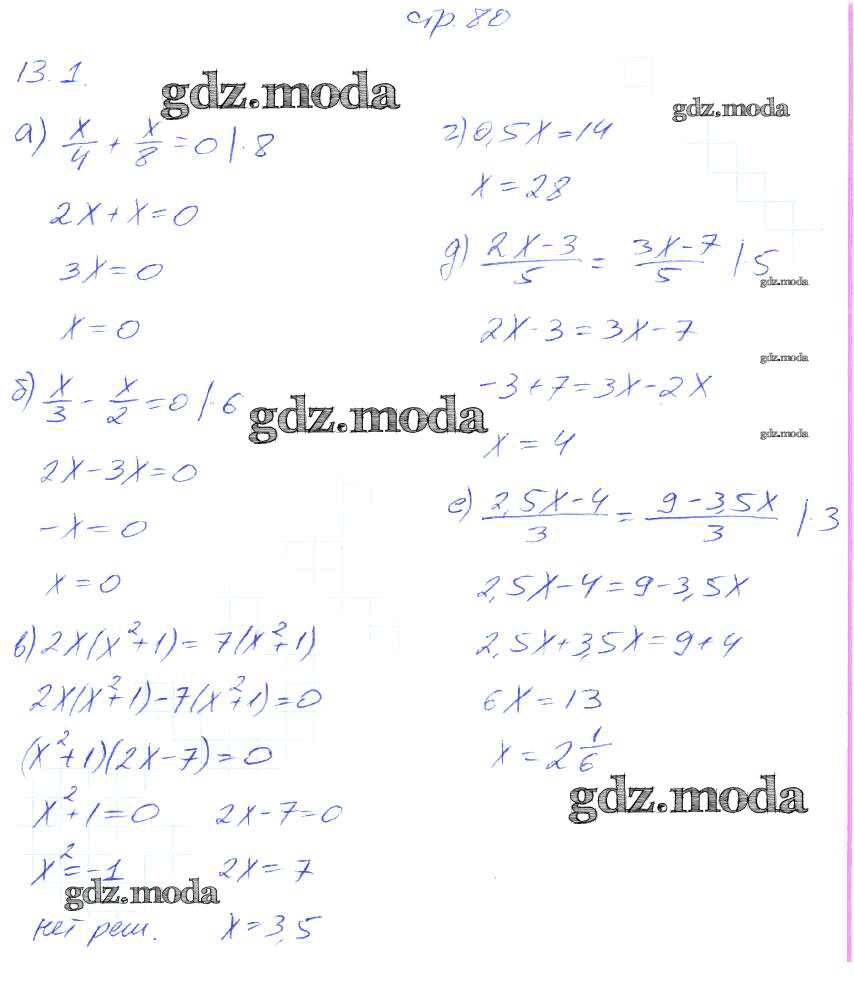 стр. 80
13.1.
gdz.moda
а) x/4 + x/8 = 0 |·8
2x + x = 0
3x = 0
x = 0
б) x/3 - x/2 = 0 |·6
gdz.moda
2x - 3x = 0
-x = 0
x = 0
в) 2x(x²+1) = 7(x²+1)
2x(x²+1) - 7(x²+1) = 0
(x²+1)(2x-7) = 0
x²+1 = 0    2x-7 = 0
x² = -1    2x = 7
gdz.moda
нет реш.    x = 3,5
gdz.moda
г) 0,5x = 14
x = 28
д) (2x-3)/5 = (3x-7)/5 |·5
gdz.moda
2x - 3 = 3x - 7
gdz.moda
-3 + 7 = 3x - 2x
gdz.moda
x = 4
е) (2,5x-4)/3 = (9-3,5x)/3 |·3
2,5x - 4 = 9 - 3,5x
2,5x + 3,5x = 9 + 4
6x = 13
x = 2 1/6
gdz.moda